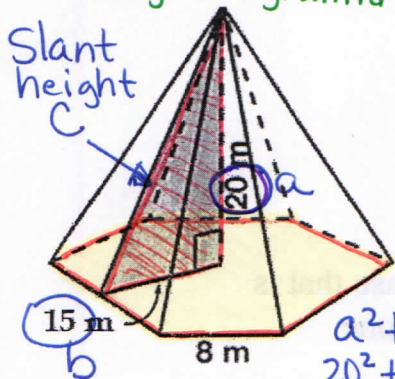 Slant
height
C
20 m a
15 m
b
8 m
a²+
20²+